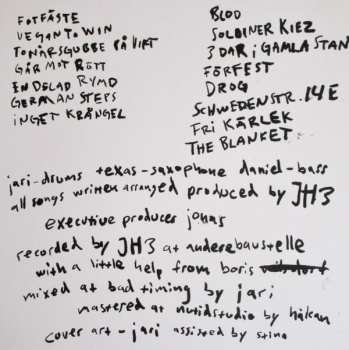 FOTFÄSTE
VEGAN TO WIN
TONÅRSGUBBE PÅ VIFT
GÅR MOT RÖTT
EN DELAD RYMD
GERMAN STEPS
INGET KRÅNGEL
BLOD
SOLDINER KIEZ
3 DAR i GAMLA STAN
FÖRFEST
DROG
SCHWEDENSTR. 14E
FRi KÄRLEK
THE BLANKET
jari-drums texas-saxophone daniel-bass
all songs written arranged produced by JH3
executive producer jonas
recorded by JH3 at anderebaustelle
with a little help from boris
mixed at bad timing by jari
mastered at nutidstudio by håkan
cover art - jari assisted by stina